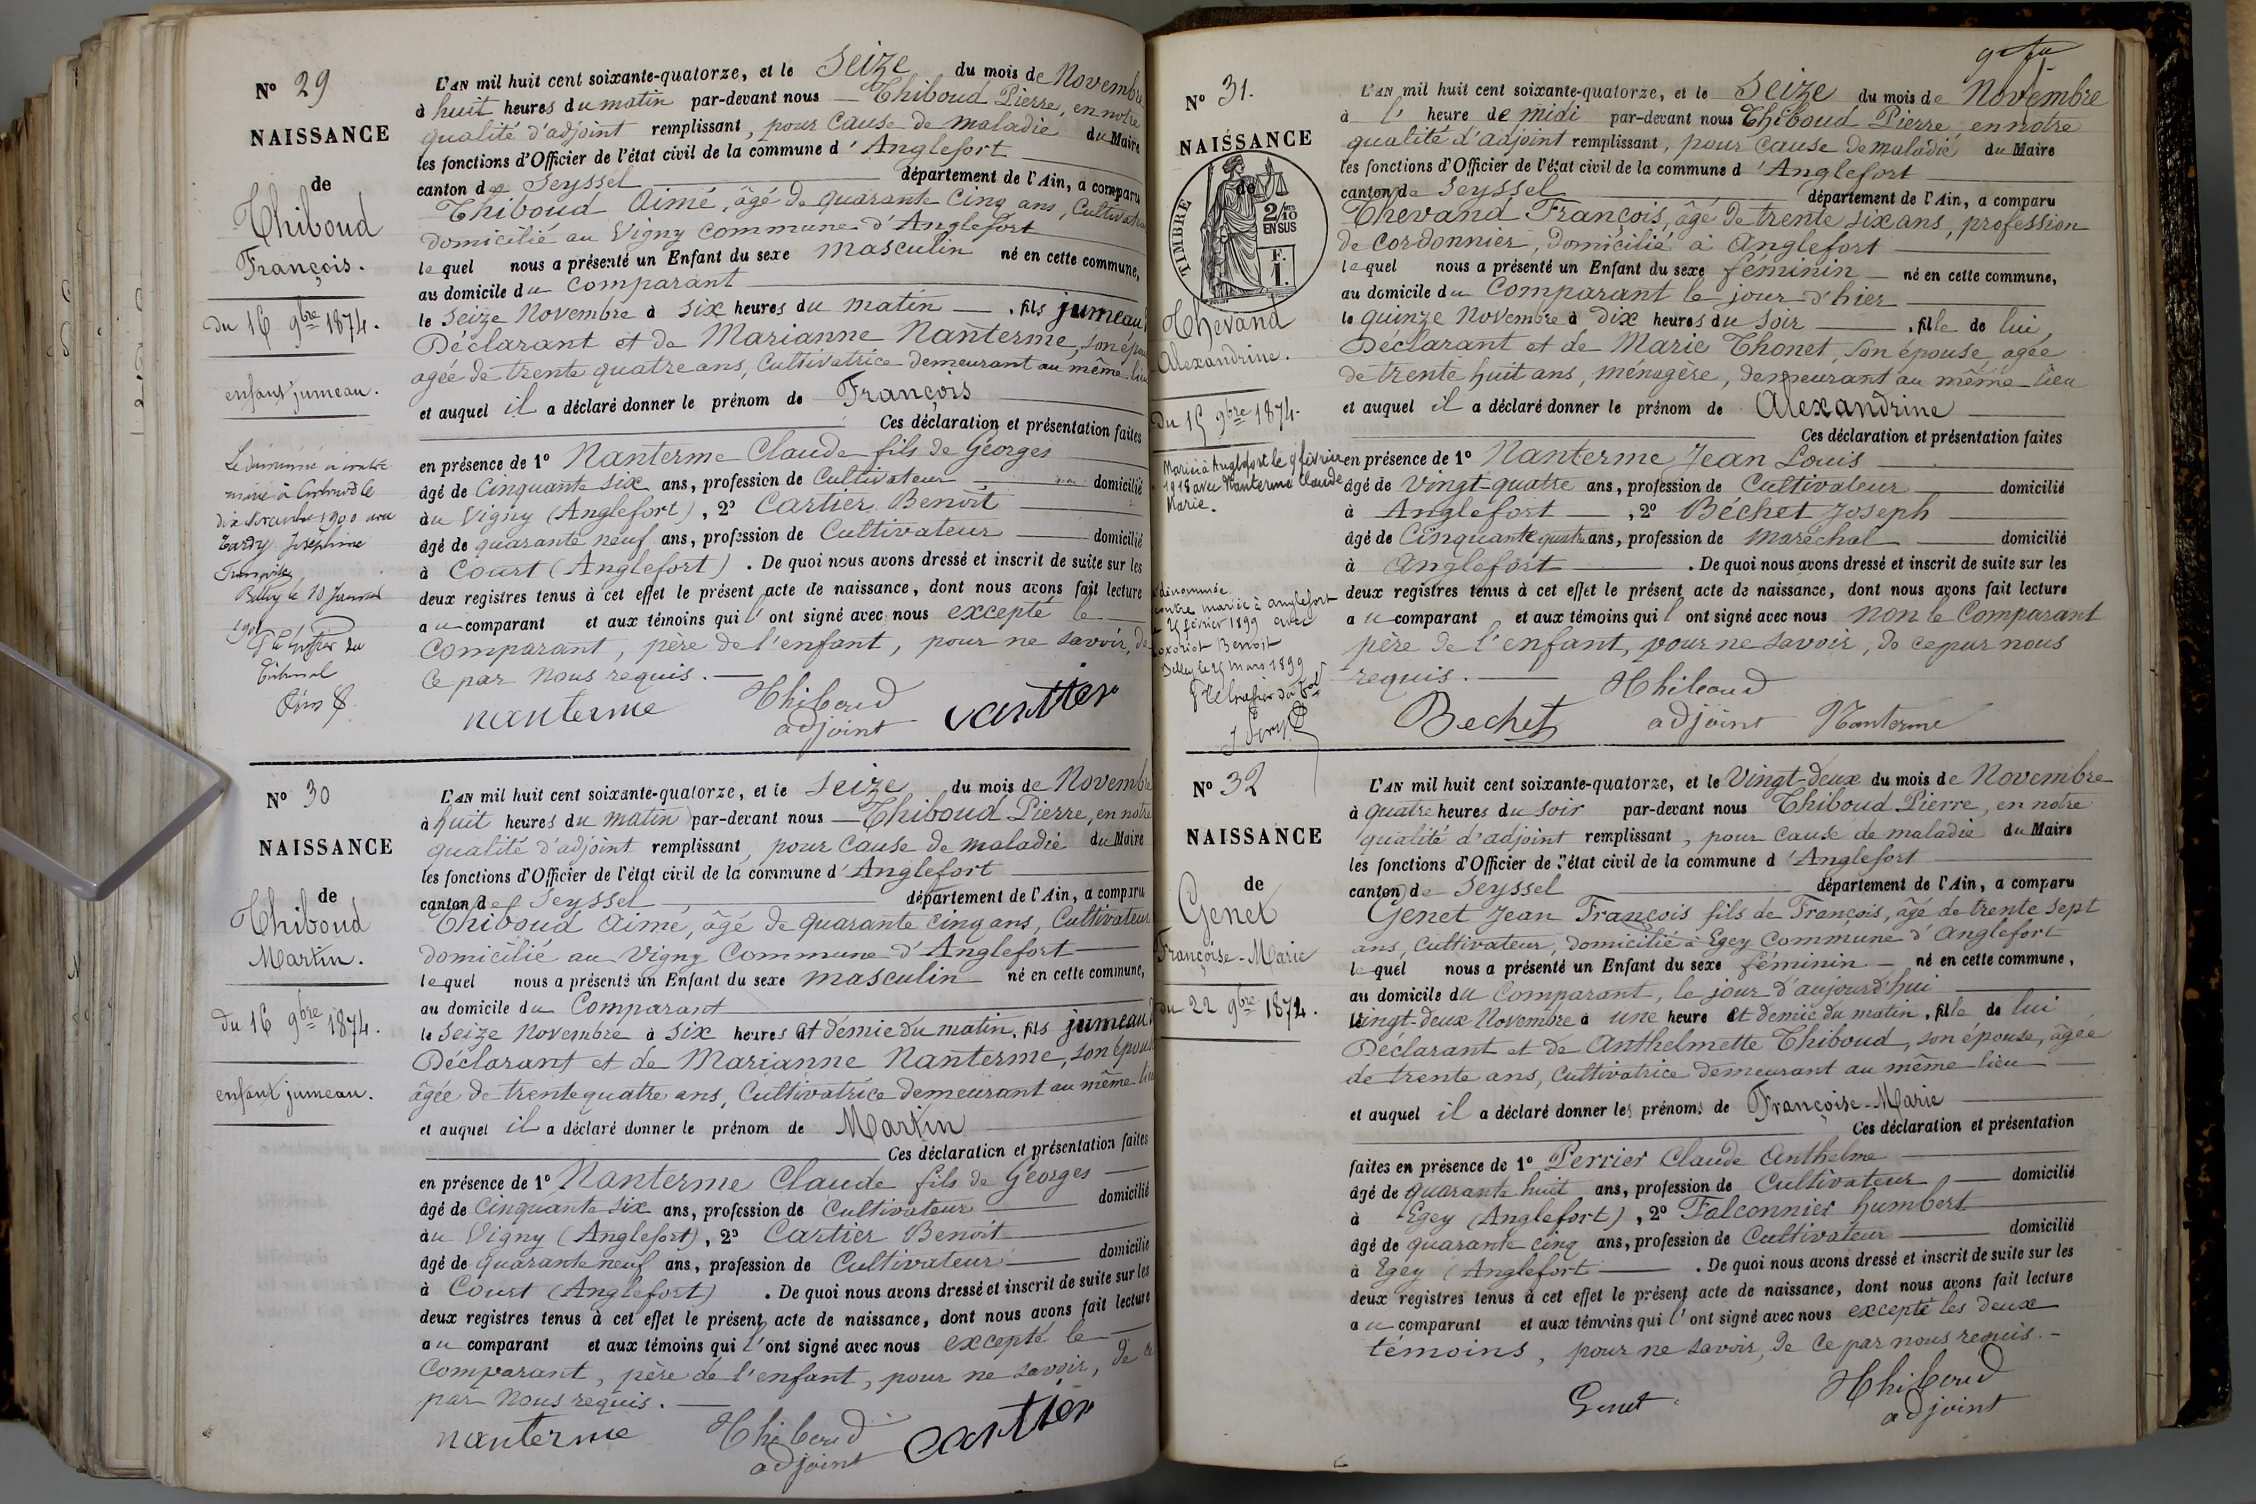 N° 29
NAISSANCE
de
Thiboud
François.
du 16 9bre 1874.
enfant jumeau.
Le dénommé ci contre
marié à
dix 1900 avec
Tardy Joséphine
Belley le 10 Janvier
1901
Le Greffier du
Tribunal
L'AN mil huit cent soixante-quatorze, et le Seize du mois de Novembre
à huit heures du matin par-devant nous — Thiboud Pierre, en notre
qualité d'adjoint remplissant, pour cause de maladie du Maire
les fonctions d'Officier de l'état civil de la commune d'Anglefort
canton de Seyssel département de l'Ain, a comparu
Thiboud Aimé, âgé de quarante cinq ans, Cultivateur
domicilié au Vigny commune d'Anglefort
lequel nous a présenté un Enfant du sexe masculin né en cette commune,
au domicile du comparant
le seize Novembre à six heures du matin —, fils jumeau
Déclarant et de Marianne Nanterme, son épouse
agée de trente quatre ans, Cultivatrice demeurant au même lieu
et auquel il a déclaré donner le prénom de François
Ces déclaration et présentation faites
en présence de 1° Nanterme Claude fils de Georges
âgé de Cinquante six ans, profession de Cultivateur domicilié
au Vigny (Anglefort), 2° Cartier Benoit
âgé de quarante neuf ans, profession de Cultivateur domicilié
à Court (Anglefort). De quoi nous avons dressé et inscrit de suite sur les
deux registres tenus à cet effet le présent acte de naissance, dont nous avons fait lecture
au comparant et aux témoins qui l'ont signé avec nous excepté le
Comparant, père de l'enfant, pour ne savoir, de
ce par nous requis. —
nanterme Thiboud adjoint cartier
N° 30
NAISSANCE
de
Thiboud
Martin.
du 16 9bre 1874.
enfant jumeau.
L'AN mil huit cent soixante-quatorze, et le Seize du mois de Novembre
à huit heures du matin par-devant nous — Thiboud Pierre, en notre
qualité d'adjoint remplissant, pour cause de maladie du Maire
les fonctions d'Officier de l'état civil de la commune d'Anglefort
canton de Seyssel département de l'Ain, a comparu
Thiboud Aimé, âgé de quarante cinq ans, Cultivateur
domicilié au Vigny Commune d'Anglefort
lequel nous a présenté un Enfant du sexe masculin né en cette commune,
au domicile du Comparant
le seize Novembre à six heures et démie du matin, fils jumeau
Déclarant et de Marianne Nanterme, son épouse
âgée de trente quatre ans, Cultivatrice demeurant au même lieu
et auquel il a déclaré donner le prénom de Martin
Ces déclaration et présentation faites
en présence de 1° Nanterme Claude fils de Georges
âgé de Cinquante six ans, profession de Cultivateur domicilié
au Vigny (Anglefort), 2° Cartier Benoit
âgé de quarante neuf ans, profession de Cultivateur domicilié
à Court (Anglefort). De quoi nous avons dressé et inscrit de suite sur les
deux registres tenus à cet effet le présent acte de naissance, dont nous avons fait lecture
au comparant et aux témoins qui l'ont signé avec nous excepté le
Comparant, père de l'enfant, pour ne savoir, de ce
par nous requis. —
nanterme Thiboud adjoint cartier
N° 31.
NAISSANCE
de
TIMBRE
2/10
EN SUS
F.
1.
Thevand
Alexandrine.
Du 15 9bre 1874.
Mariée à Anglefort le 9 février
1918 avec Nanterme Claude
Marie.
dénommée
contre mariée à Anglefort
février 1899 avec
Benoit
Belley, le 25 mars 1899
Le Greffier du Tal
L'AN mil huit cent soixante-quatorze, et le Seize du mois de Novembre
à l' heure de midi par-devant nous Thiboud Pierre, en notre
qualité d'adjoint remplissant, pour cause de maladie du Maire
les fonctions d'Officier de l'état civil de la commune d'Anglefort
canton de Seyssel département de l'Ain, a comparu
Thevand François, âgé de trente six ans, profession
de cordonnier, domicilié à Anglefort
lequel nous a présenté un Enfant du sexe féminin — né en cette commune,
au domicile du Comparant le jour d'hier
le quinze Novembre à dix heures du soir, fille de lui,
Déclarant et de Marie Thonet, son épouse, agée
de trente huit ans, ménagère, demeurant au même lieu
et auquel il a déclaré donner le prénom de Alexandrine
Ces déclaration et présentation faites
en présence de 1° Nanterme Jean Louis
âgé de vingt-quatre ans, profession de Cultivateur domicilié
à Anglefort —, 2° Béchet Joseph
âgé de Cinquante quatre ans, profession de Maréchal domicilié
à Anglefort. De quoi nous avons dressé et inscrit de suite sur les
deux registres tenus à cet effet le présent acte de naissance, dont nous avons fait lecture
au comparant et aux témoins qui l'ont signé avec nous non le Comparant
père de l'enfant, pour ne savoir, de ce par nous
requis. —
Bechet Thiboud adjoint Nanterme
N° 32
NAISSANCE
de
Genet
Françoise-Marie
du 22 9bre 1874.
L'AN mil huit cent soixante-quatorze, et le Vingt-deux du mois de Novembre
à quatre heures du soir par-devant nous Thiboud Pierre, en notre
qualité d'adjoint remplissant, pour cause de maladie du Maire
les fonctions d'Officier de l'état civil de la commune d'Anglefort
canton de Seyssel département de l'Ain, a comparu
Genet Jean François fils de François, âgé de trente sept
ans, Cultivateur, domicilié à Egey Commune d'Anglefort
lequel nous a présenté un Enfant du sexe féminin — né en cette commune,
au domicile du Comparant, le jour d'aujourd'hui
vingt-deux Novembre à une heure et demie du matin, fille de lui
Déclarant et de Anthelmette Thiboud, son épouse, âgée
de trente ans, Cultivatrice demeurant au même lieu
et auquel il a déclaré donner les prénoms de Françoise-Marie
Ces déclaration et présentation
faites en présence de 1° Perrier Claude Anthelme
âgé de quarante huit ans, profession de Cultivateur domicilié
à Egey (Anglefort), 2° Falconnier humbert
âgé de quarante cinq ans, profession de Cultivateur domicilié
à Egey (Anglefort. De quoi nous avons dressé et inscrit de suite sur les
deux registres tenus à cet effet le présent acte de naissance, dont nous avons fait lecture
au comparant et aux témoins qui l'ont signé avec nous excepté les deux
témoins, pour ne savoir, de ce par nous requis. —
Genet Thiboud adjoint